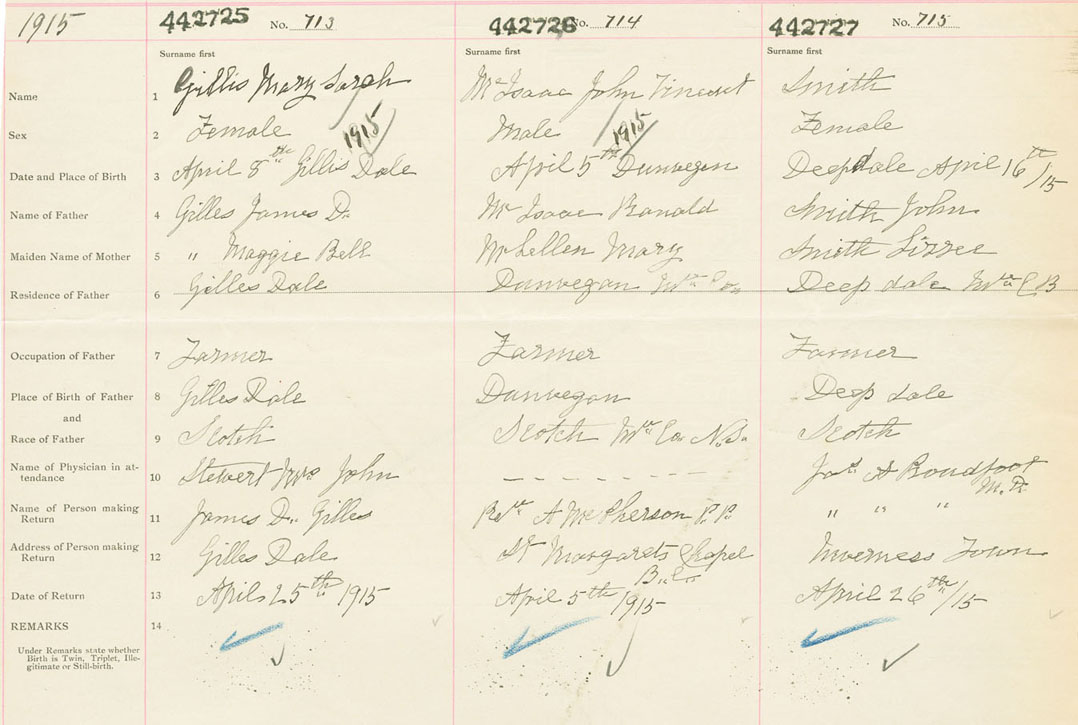 1915
442725 No. 713
442726 No. 714
442727 No. 715
Surname first
Surname first
Surname first
Name 1 Gillis Mary Sarah
Mc Isaac John Vincent
Smith
Sex 2 Female 1915
Male 1915
Female
Date and Place of Birth 3 April 8th Gillis Dale
April 5th Dunvegan
Deepdale April 16th/15
Name of Father 4 Gilles James D.
Mc Isaac Ranald
Smith John
Maiden Name of Mother 5 " Maggie Bell
McLellen Mary
Smith Lizzee
Residence of Father 6 Gilles Dale
Dunvegan
Deep dale C B
Occupation of Father 7 Farmer
Farmer
Farmer
Place of Birth of Father 8 Gilles Dale
Dunvegan
Deep dale
and
Race of Father 9 Scotch
Scotch Co. N.S.
Scotch
Name of Physician in at-
tendance 10 Stewert John
– – – – – – –
Jas A Proudfoot
M.D.
Name of Person making
Return 11 James D. Gilles
Revd A McPherson P.P.
" " "
Address of Person making
Return 12 Gilles Dale
St Margarets Chapel
Inverness Town
Date of Return 13 April 25th 1915
April 5th 1915
April 26th/15
REMARKS 14
Under Remarks state whether
Birth is Twin, Triplet, Ille-
gitimate or Still-birth.